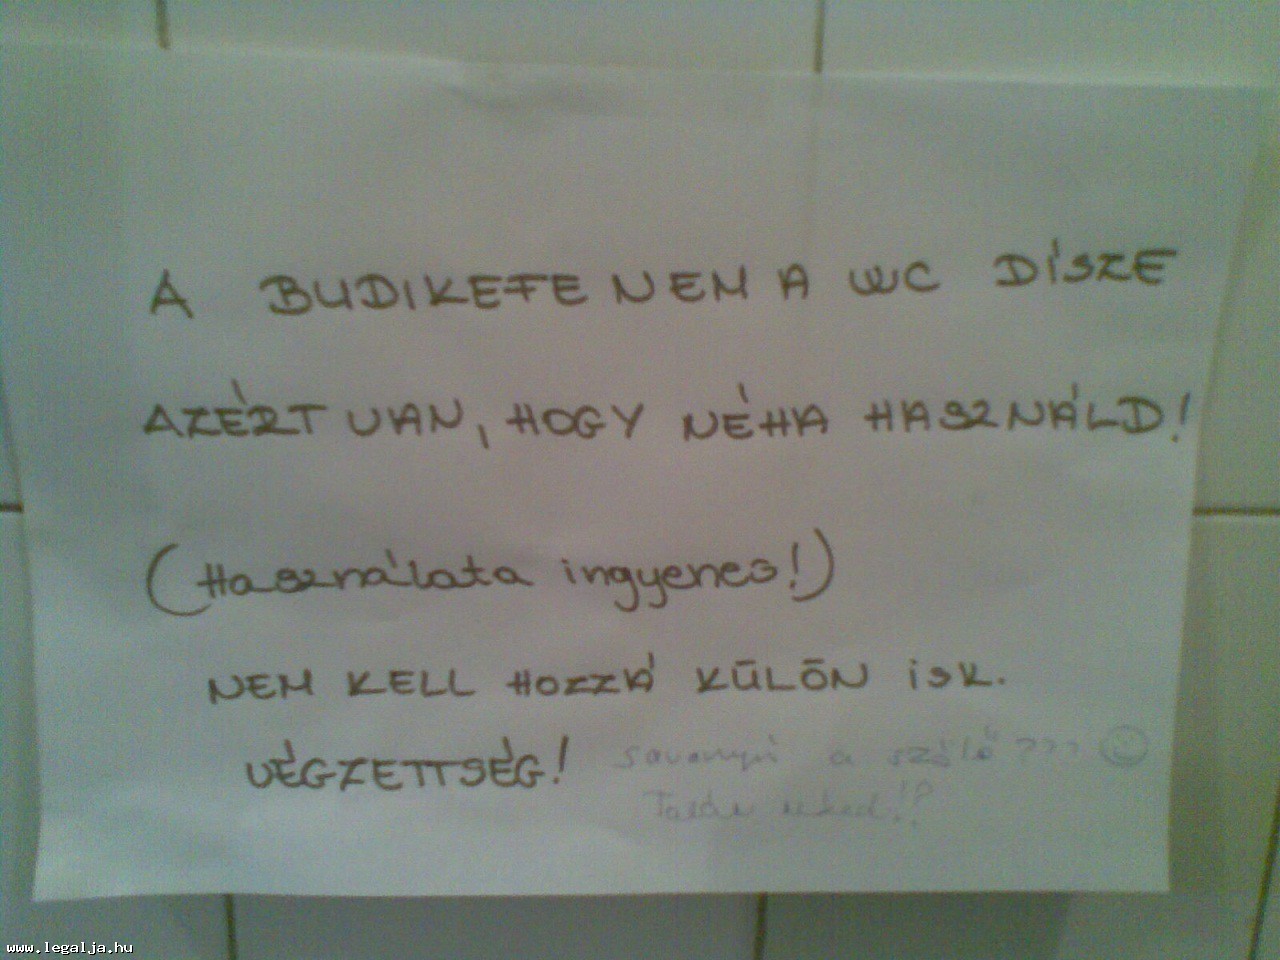 A BUDIKEFE NEM A WC DÍSZE
AZÉRT VAN, HOGY NÉHA HASZNÁLD!
(Használata ingyenes!)
NEM KELL HOZZÁ KŪLŌN ISK.
VÉGZETTSÉG!
savanyú a szőlő???
Talán neked!?
www.legalja.hu